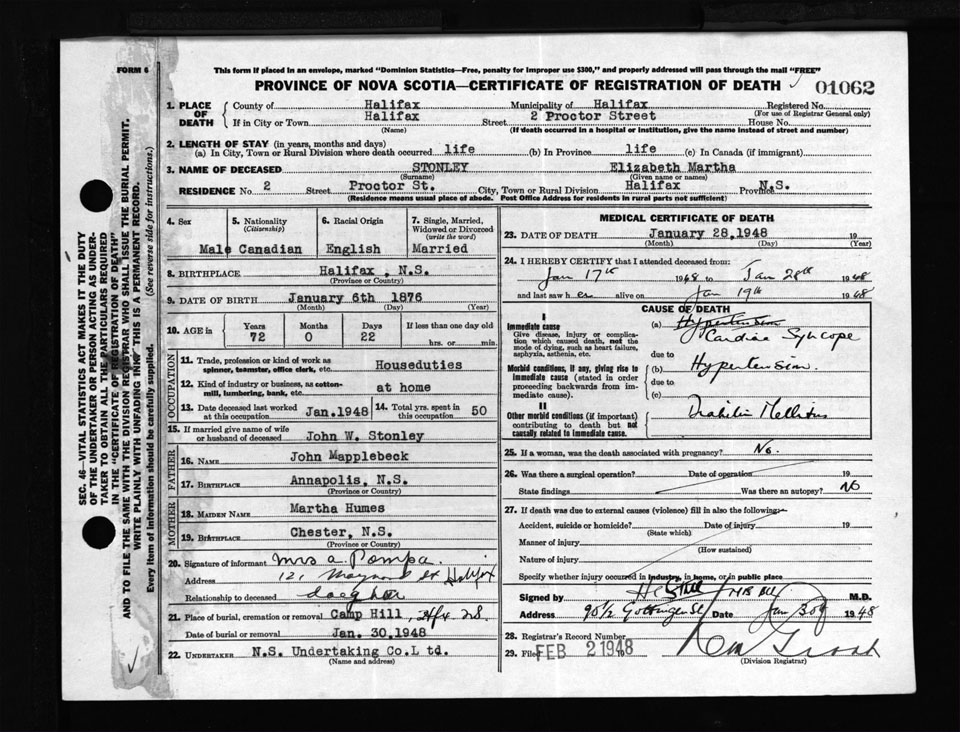 FORM 6
This form if placed in an envelope, marked "Dominion Statistics—Free, penalty for improper use $300," and properly addressed will pass through the mail "FREE"
PROVINCE OF NOVA SCOTIA—CERTIFICATE OF REGISTRATION OF DEATH
01062
1. PLACE OF DEATH
County of Halifax Municipality of Halifax Registered No.
(For use of Registrar General only)
If in City or Town Halifax Street 2 Proctor Street House No.
(Name) (If death occurred in a hospital or institution, give the name instead of street and number)
2. LENGTH OF STAY (in years, months and days)
(a) In City, Town or Rural Division where death occurred life (b) In Province life (c) In Canada (if immigrant)
3. NAME OF DECEASED STONLEY Elizabeth Martha
(Surname) (Given name or names)
RESIDENCE No. 2 Street Proctor St. City, Town or Rural Division Halifax Province N.S.
(Residence means usual place of abode. Post Office Address for residents in rural parts not sufficient)
4. Sex
Male
5. Nationality
(Citizenship)
Canadian
6. Racial Origin
English
7. Single, Married, Widowed or Divorced
(write the word)
Married
8. BIRTHPLACE Halifax, N.S.
(Province or Country)
9. DATE OF BIRTH January 6th 1876
(Month) (Day) (Year)
10. AGE in
Years 72
Months 0
Days 22
If less than one day old
hrs. or min.
OCCUPATION
11. Trade, profession or kind of work as spinner, teamster, office clerk, etc. Houseduties
12. Kind of industry or business, as cotton-mill, lumbering, bank, etc. at home
13. Date deceased last worked at this occupation Jan.1948
14. Total yrs. spent in this occupation 50
15. If married give name of wife or husband of deceased John W. Stonley
FATHER
16. NAME John Mapplebeck
17. BIRTHPLACE Annapolis, N.S.
(Province or Country)
MOTHER
18. MAIDEN NAME Martha Humes
19. BIRTHPLACE Chester, N.S.
(Province or Country)
20. Signature of informant Mrs A. Pompa.
Address 121 Maynard St Halifax
Relationship to deceased daughter
21. Place of burial, cremation or removal Camp Hill,
Date of burial or removal Jan. 30,1948
22. UNDERTAKER N.S. Undertaking Co.L td.
(Name and address)
MEDICAL CERTIFICATE OF DEATH
23. DATE OF DEATH January 28,1948 19
(Month) (Day) (Year)
24. I HEREBY CERTIFY that I attended deceased from:
Jan 17th 1948 to Jan 28th 1948
and last saw h er alive on Jan 19th 1948
CAUSE OF DEATH
I
Immediate cause
Give disease, injury or complication which caused death, not the mode of dying, such as heart failure, asphyxia, asthenia, etc.
(a) Hypertension
Cardiac Syncope
due to
Morbid conditions, if any, giving rise to immediate cause (stated in order proceeding backwards from immediate cause).
(b) Hypertension.
due to
(c)
II
Other morbid conditions (if important) contributing to death but not causally related to immediate cause.
Diabetes Mellitus
25. If a woman, was the death associated with pregnancy? No.
26. Was there a surgical operation? Date of operation 19
State findings Was there an autopsy? No
27. If death was due to external causes (violence) fill in also the following:
Accident, suicide or homicide? Date of injury 19
(State which)
Manner of injury
(How sustained)
Nature of injury
Specify whether injury occurred in industry, in home, or in public place
Signed by M.D.
Address 90 1/2 Gottingen St Date Jan 30 1948
28. Registrar's Record Number
29. Filed FEB 2 1948 19
(Division Registrar)
SEC. 46—VITAL STATISTICS ACT MAKES IT THE DUTY OF THE UNDERTAKER OR PERSON ACTING AS UNDERTAKER TO OBTAIN ALL THE PARTICULARS REQUIRED IN THE "CERTIFICATE OF REGISTRATION OF DEATH" AND TO FILE THE SAME WITH THE DIVISION REGISTRAR WHO SHALL ISSUE THE BURIAL PERMIT.
WRITE PLAINLY WITH UNFADING INK—THIS IS A PERMANENT RECORD.
Every item of information should be carefully supplied. (See reverse side for instructions.)